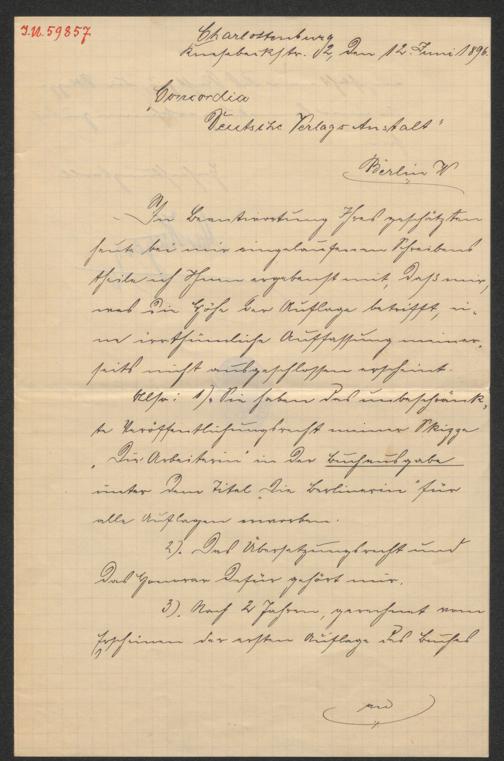 J.N. 59857
Charlottenburg
Knesebeckstr. 12, den 12. Juni 1896.
„Concordia
Deutsche Verlags-Anstalt“
Berlin W
In Beantwortung Ihres geschätzten
heute bei mir eingelaufenen Schreibens
theile ich Ihnen ergebenst mit, daß mir,
was die Höhe der Auflage betrifft, ei-
ne irrthümliche Auffassung meiner-
seits nicht ausgeschlossen erscheint.
Also: 1). Sie haben das unbeschränk-
te Veröffentlichungsrecht meiner Skizze
„Die Arbeiterin“ in der Buchausgabe
unter dem Titel „Die Berlinerin“ für
alle Auflagen erworben.
2). Das Übersetzungsrecht und
das Honorar dafür gehört mir.
3). Nach 2 Jahren, gerechnet vom
Erscheinen der ersten Auflage des Buches